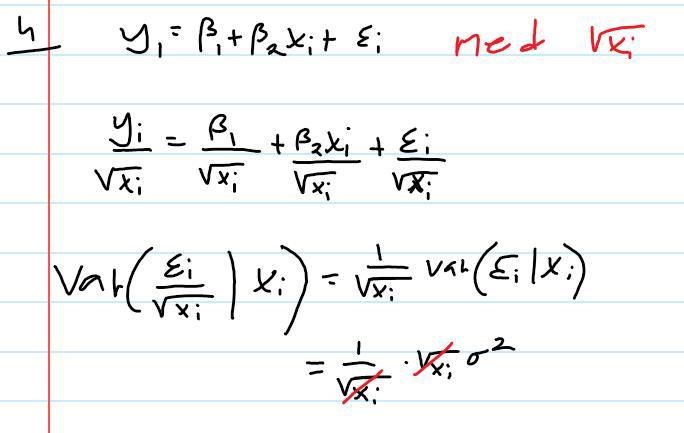 4 y₁ = β₁ + β₂xᵢ + εᵢ med √xᵢ
yᵢ/√xᵢ = β₁/√xᵢ + β₂xᵢ/√xᵢ + εᵢ/√xᵢ
Var(εᵢ/√xᵢ | xᵢ) = 1/√xᵢ var(εᵢ|xᵢ)
= 1/√xᵢ · √xᵢ σ²